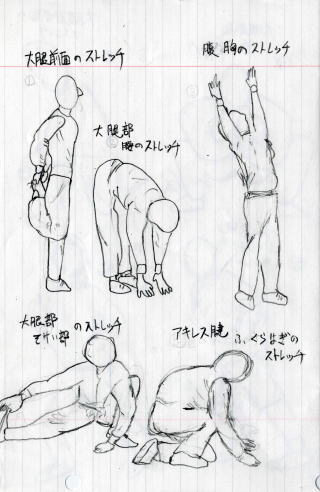 大腿前面のストレッチ
①
腹胸のストレッチ
②
大腿部
胸のストレッチ
大腿部
そけい部のストレッチ
アキレス腱 ふくらはぎの
ストレッチ